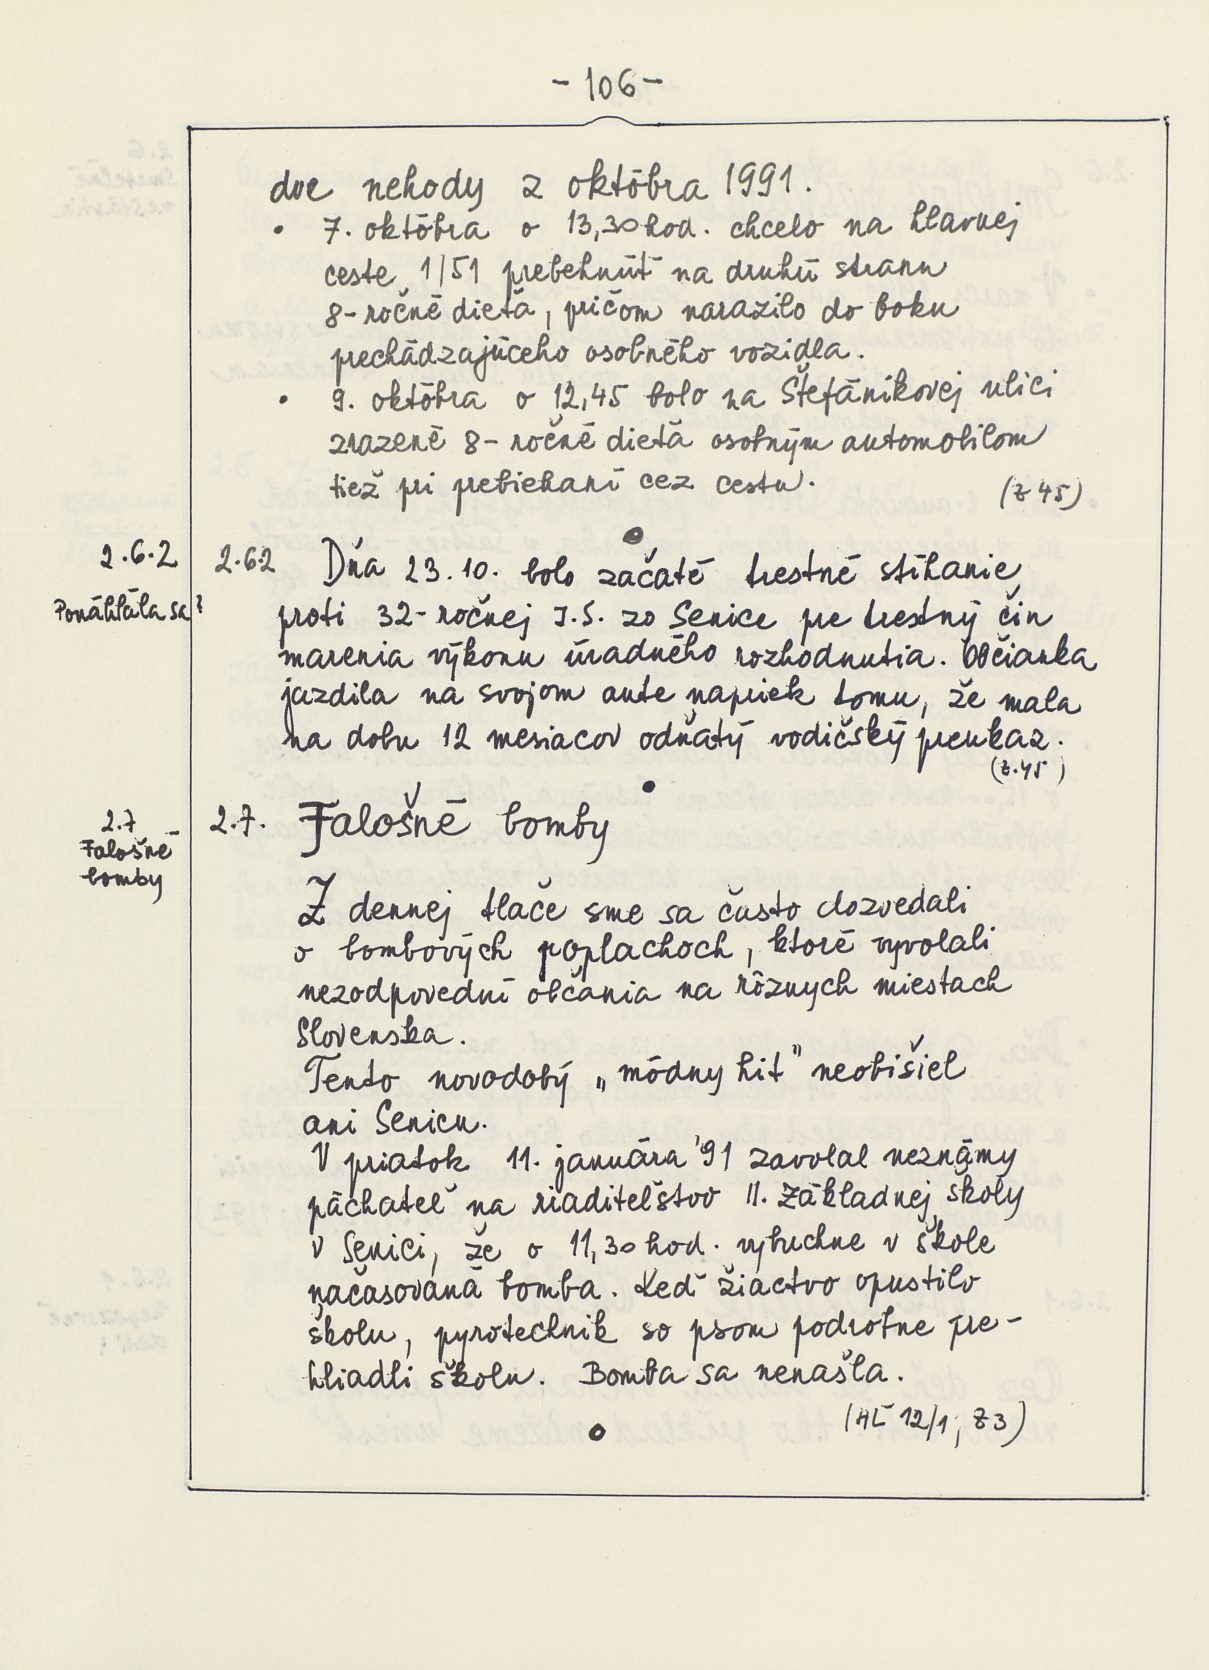 - 106 -
dve nehody z októbra 1991.
• 7. októbra o 13,30 hod. chcelo na hlavnej
ceste 1/51 prebehnúť na druhú stranu
8-ročné dieťa, pričom narazilo do boku
prechádzajúceho osobného vozidla.
• 9. októbra o 12,45 bolo na Štefánikovej ulici
zrazené 8-ročné dieťa osobným automobilom
tiež pri prebiehaní cez cestu.
(Z 45)
2.6.2
Ponáhľala sa?
2.6.2 Dňa 23.10. bolo začaté trestné stíhanie
proti 32-ročnej J.S. zo Senice pre trestný čin
marenia výkonu úradného rozhodnutia. Občianka
jazdila na svojom aute napriek tomu, že mala
na dobu 12 mesiacov odňatý vodičský preukaz.
(Z.45)
2.7
Falošné
bomby
2.7. Falošné bomby
Z dennej tlače sme sa často dozvedali
o bombových poplachoch, ktoré vyvolali
nezodpovední občania na rôznych miestach
Slovenska.
Tento novodobý „módny hit" neobišiel
ani Senicu.
V piatok 11. januára '91 zavolal neznámy
páchateľ na riaditeľstvo II. Základnej školy
v Senici, že o 11,30 hod. vybuchne v škole
načasovaná bomba. Keď žiactvo opustilo
školu, pyrotechnik so psom podrobne pre-
hliadli školu. Bomba sa nenašla.
(HĽ 12/1, Z 3)